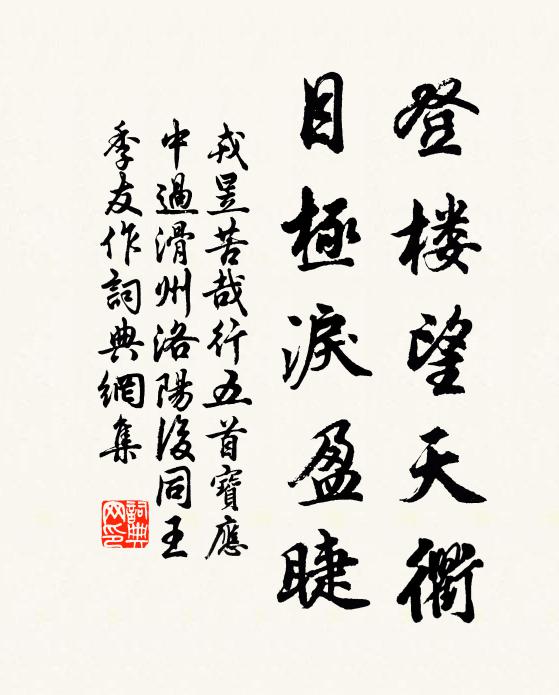 登楼望天衢
目極淚盈睫
戎昱苦哉行五首寳應
中過滑州洛陽後同王
季友作詞典網集
詞典网印